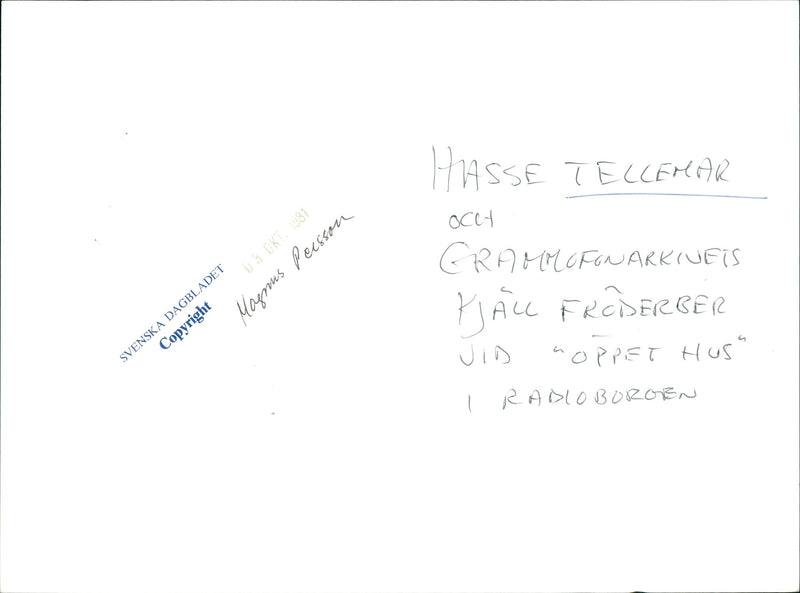 SVENSKA DAGBLADET
Copyright
OKT. 1981
Magnus Persson
HASSE TELLEMAR
OCH
GRAMMOFONARKIVETS
KJÄLL FRÖDERBER
VID "ÖPPET HUS"
I RADIOBORGEN